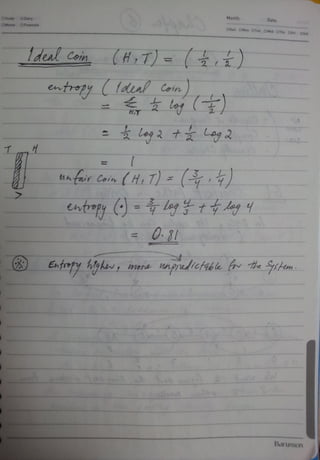 Month: Date:
Ideal Coin (H, T) = ( 1/2 , 1/2 )
entropy ( Ideal Coin )
= Σ 1/2 log ( 1/ 1/2 )
= 1/2 log 2 + 1/2 log 2
= 1
T H
unfair coin (H, T) = ( 3/4 , 1/4 )
entropy (·) = 3/4 log 4/3 + 1/4 log 4
= 0.81
Entropy higher, more unpredictable for the System.
Barunson